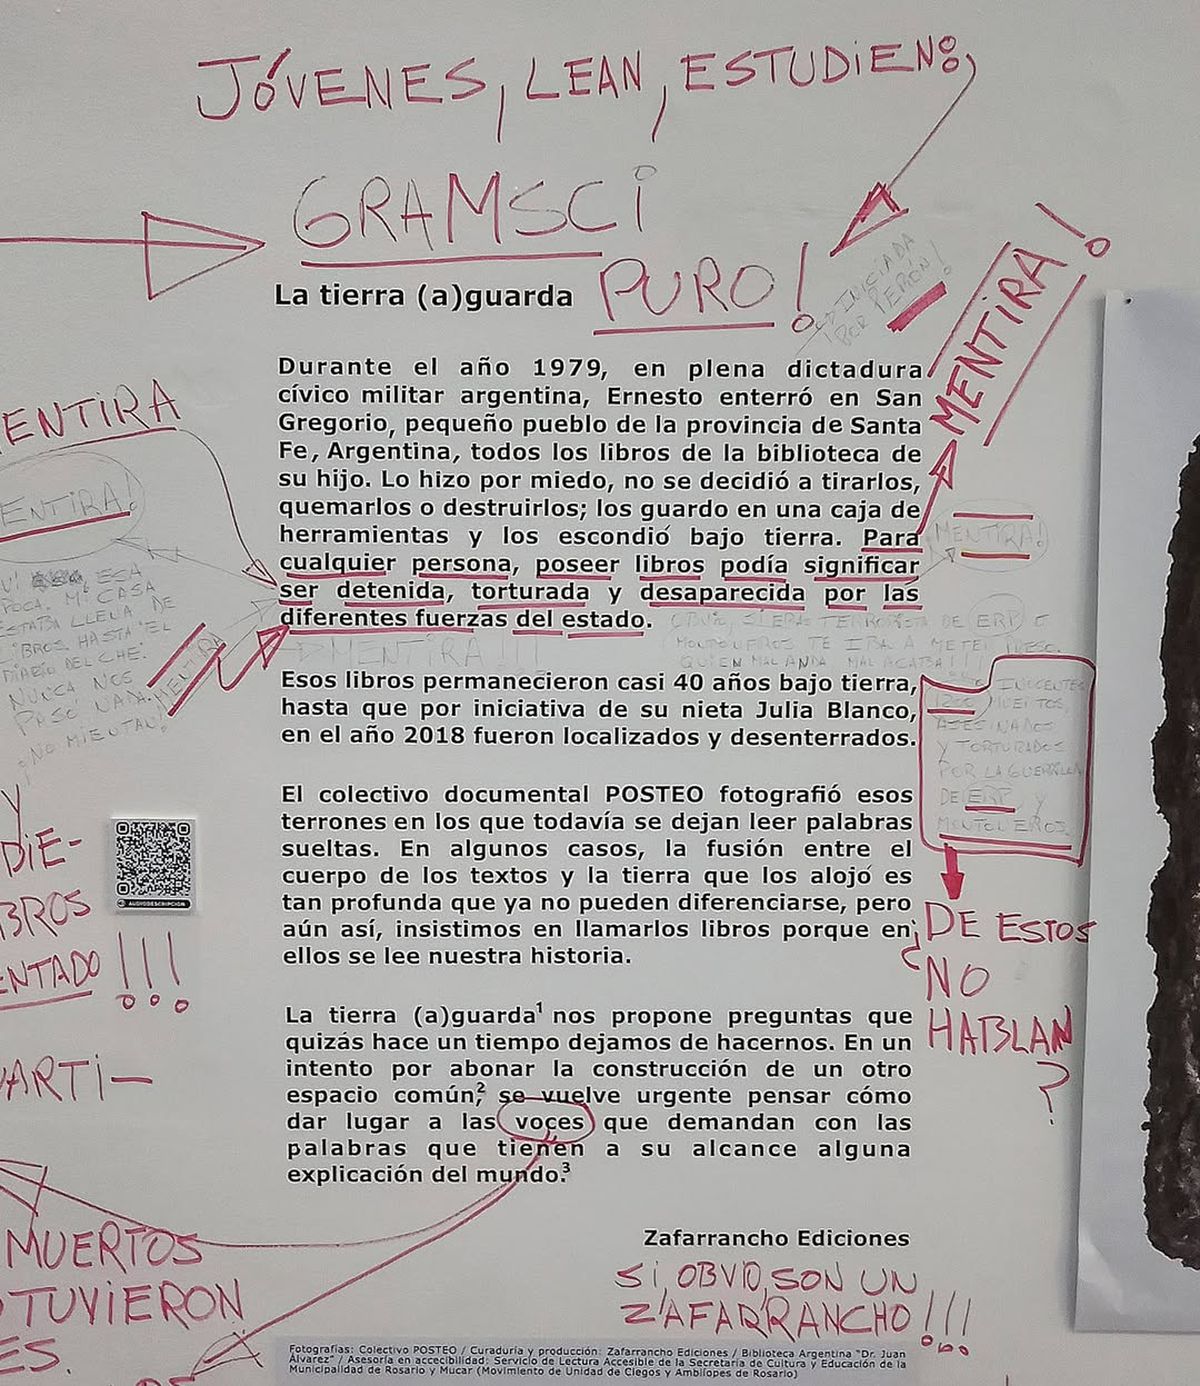 JÓVENES, LEAN, ESTUDIEN:
GRAMSCI
PURO!
La tierra (a)guarda
INICIADA
POR PERÓN!
MENTIRA!
Durante el año 1979, en plena dictadura
cívico militar argentina, Ernesto enterró en San
Gregorio, pequeño pueblo de la provincia de Santa
Fe, Argentina, todos los libros de la biblioteca de
su hijo. Lo hizo por miedo, no se decidió a tirarlos,
quemarlos o destruirlos; los guardo en una caja de
herramientas y los escondió bajo tierra. Para
cualquier persona, poseer libros podía significar
ser detenida, torturada y desaparecida por las
diferentes fuerzas del estado.
ENTIRA
ENTIRA!
MENTIRA!
ESA
POCA. MI CASA
ESTABA LLENA DE
LIBROS HASTA EL
DIARIO DEL CHE.
NUNCA NOS
PASÓ NADA.
¡NO MIENTAN!
MENTIRA
MENTIRA!!!
OBVIO, SI ERAS TERRORISTA DE ERP O
MONTONEROS TE IBA A METER PRESO.
QUIEN MAL ANDA MAL ACABA!!!
Esos libros permanecieron casi 40 años bajo tierra,
hasta que por iniciativa de su nieta Julia Blanco,
en el año 2018 fueron localizados y desenterrados.
INOCENTES
MUERTOS,
ASESINADOS
Y TORTURADOS
POR LA GUERRILLA
DE ERP Y
MONTONEROS.
¿DE ESTOS
NO
HABLAN
?
El colectivo documental POSTEO fotografió esos
terrones en los que todavía se dejan leer palabras
sueltas. En algunos casos, la fusión entre el
cuerpo de los textos y la tierra que los alojó es
tan profunda que ya no pueden diferenciarse, pero
aún así, insistimos en llamarlos libros porque en
ellos se lee nuestra historia.
Y
DIE-
BROS
ENTADO!!!
ARTI-
AUDIODESCRIPCION
La tierra (a)guarda¹ nos propone preguntas que
quizás hace un tiempo dejamos de hacernos. En un
intento por abonar la construcción de un otro
espacio común,² se vuelve urgente pensar cómo
dar lugar a las voces que demandan con las
palabras que tienen a su alcance alguna
explicación del mundo.³
MUERTOS
TUVIERON
ES.
Zafarrancho Ediciones
SI, OBVIO, SON UN
ZAFARRANCHO!!!
Fotografías: Colectivo POSTEO / Curaduría y producción: Zafarrancho Ediciones / Biblioteca Argentina "Dr. Juan
Álvarez" / Asesoría en accecibilidad: Servicio de Lectura Accesible de la Secretaría de Cultura y Educación de la
Municipalidad de Rosario y Mucar (Movimiento de Unidad de Ciegos y Amblíopes de Rosario)